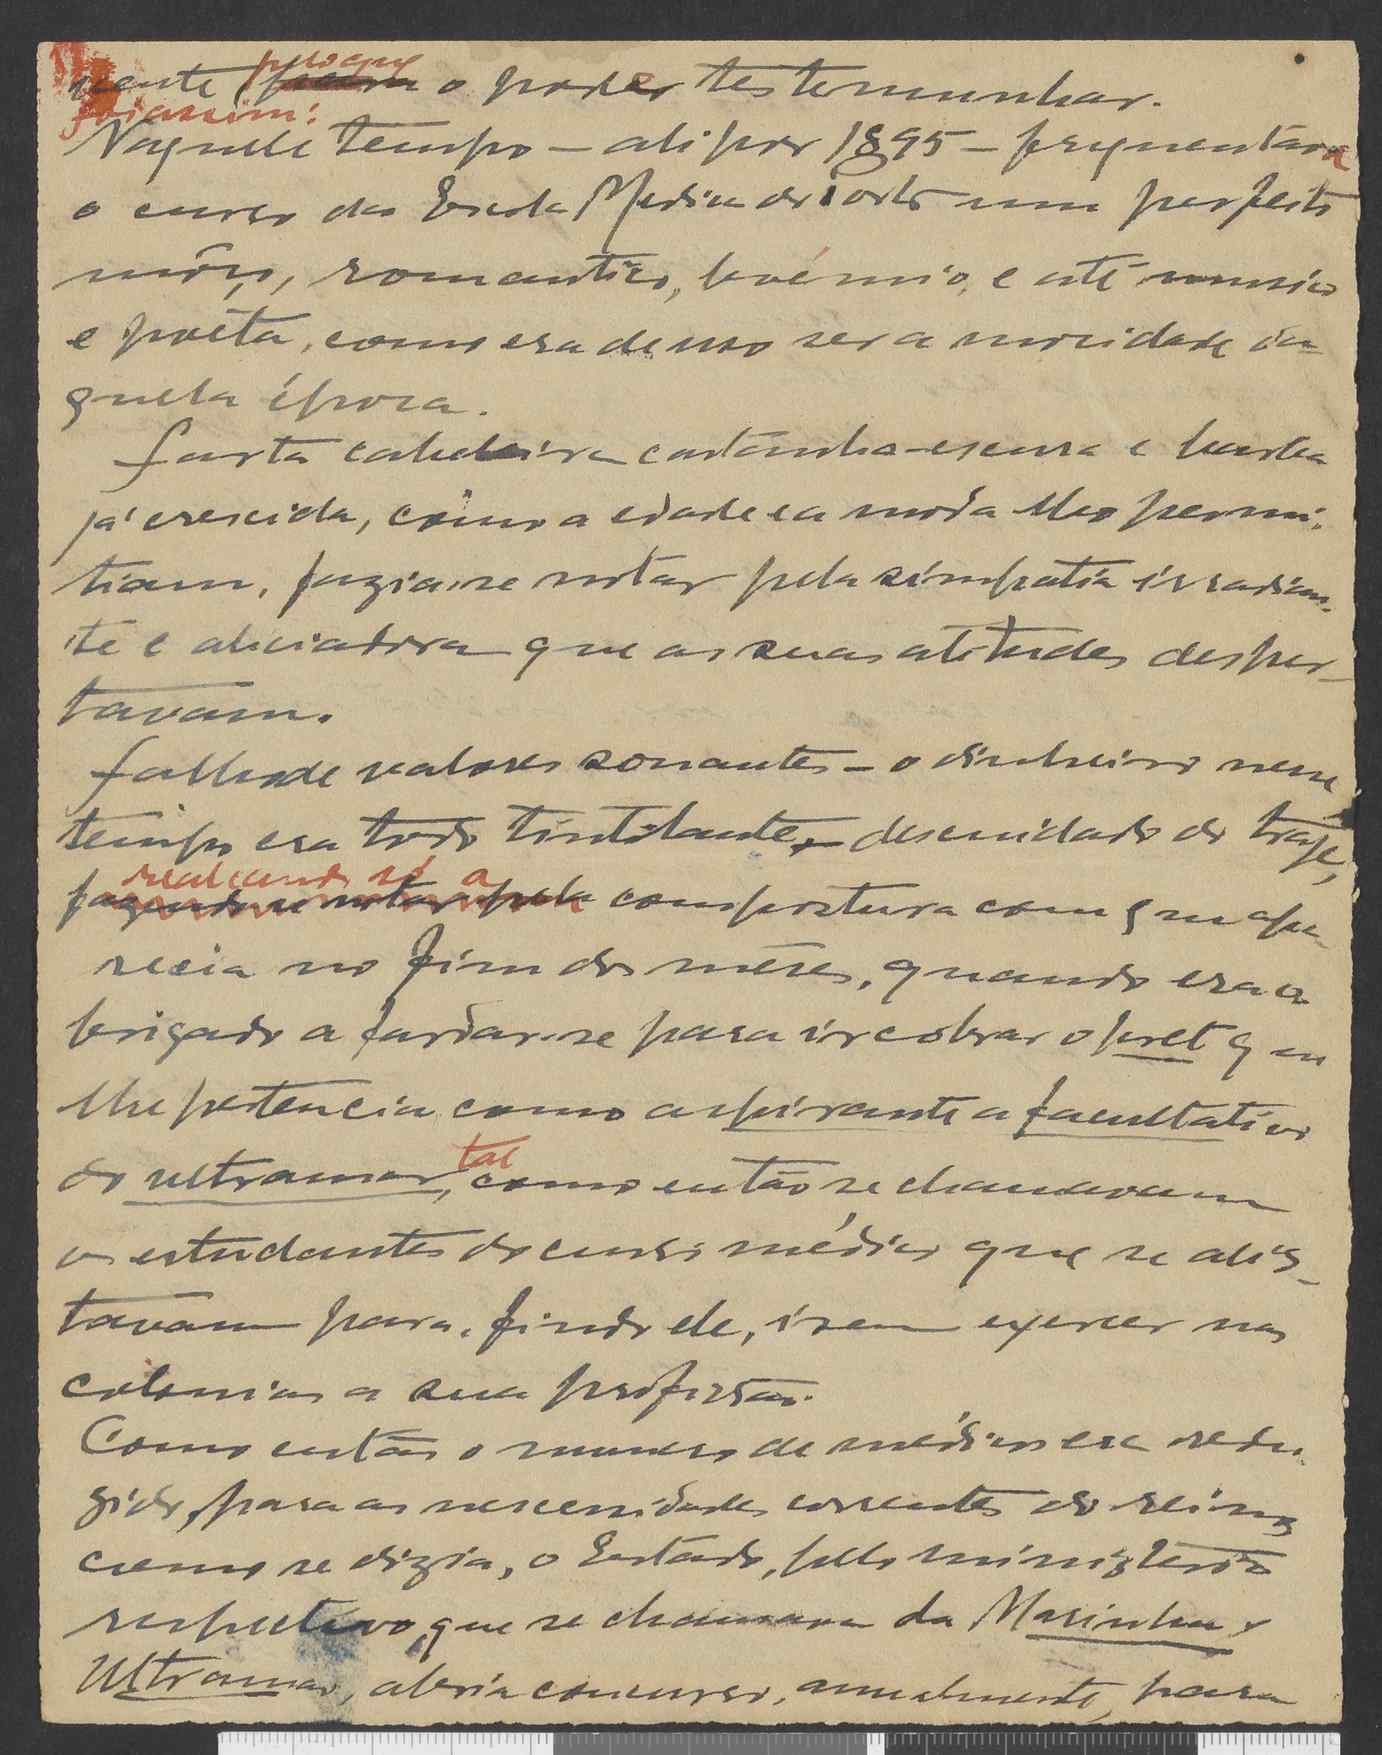 mente pelo que o poder testemunhar.
foi assim:
Naquele tempo — ali por 1895 — frequentava
o curso da Escola Medica do Porto um perfeito
môço, romantico, boémio, e até musico
e poéta, como era de uso ser a mocidade da-
quela época.
Farta cabeleira castanho-escura e barba
já crescida, como a edade e a moda lho permi-
tiam, fazia-se notar pela simpatia irradian-
te e aliciadora que as suas atitudes desper-
tavam.
Falho de valores sonantes — o dinheiro nesse
tempo era todo tintilante, — descuidado do traje,
realçando só a
fazendo-se notar pela compostura com que apa-
recia no fim dos mêses, quando era o-
brigado a fardar-se para ir cobrar o pret que
lhe pertencia como aspirante a facultativo
do ultramar, tal como então se chamavam
os estudantes do curso médico que se alis-
tavam para, findo ele, irem exercer nas
colonias a sua profissão.
Como então o numero de médicos era redu-
zido, para as necessidades correntes do reino,
como se dizia, o Estado, pelo ministério
respectivo, que se chamava da Marinha e
Ultramar, abria concurso, anualmente, para